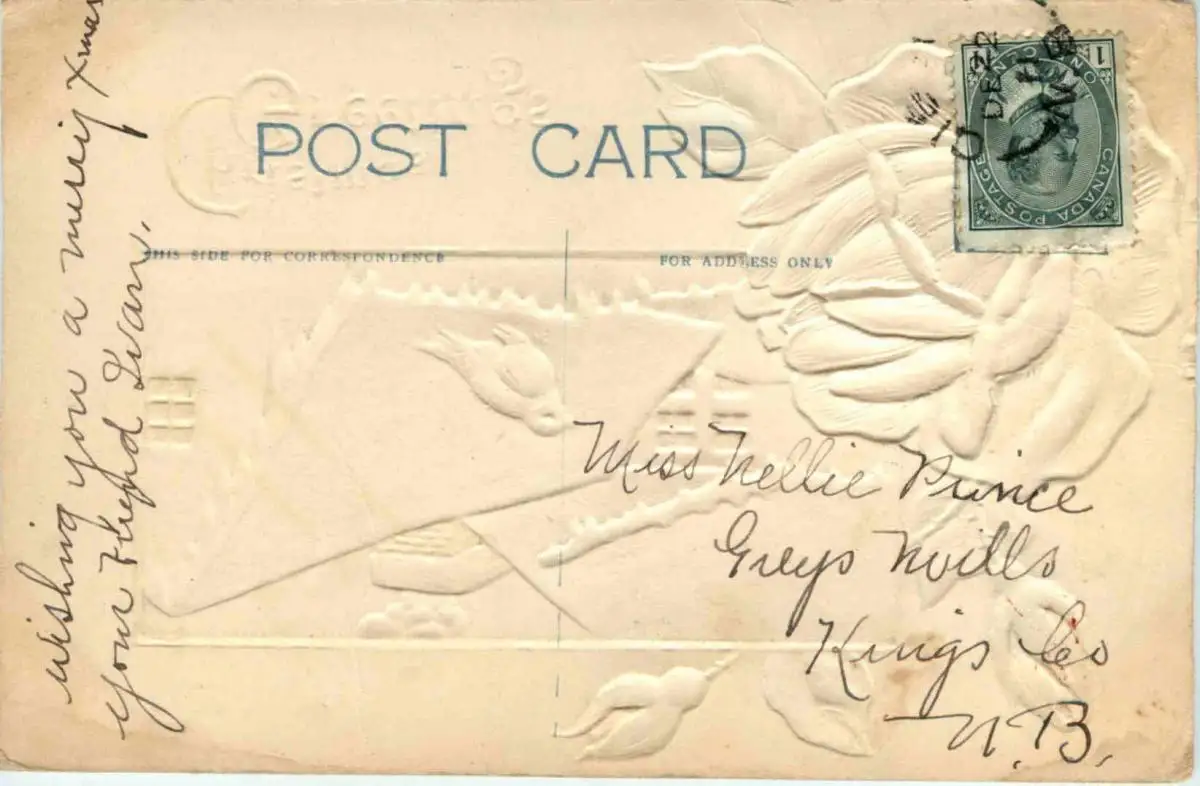 POST CARD
THIS SIDE FOR CORRESPONDENCE
FOR ADDRESS ONLY
wishing you a merry Xmas
your
Miss Nellie Prince
Greys Mills
Kings Co
N.B.
CANADA POSTAGE
ONE CENT
1 1
DE 22